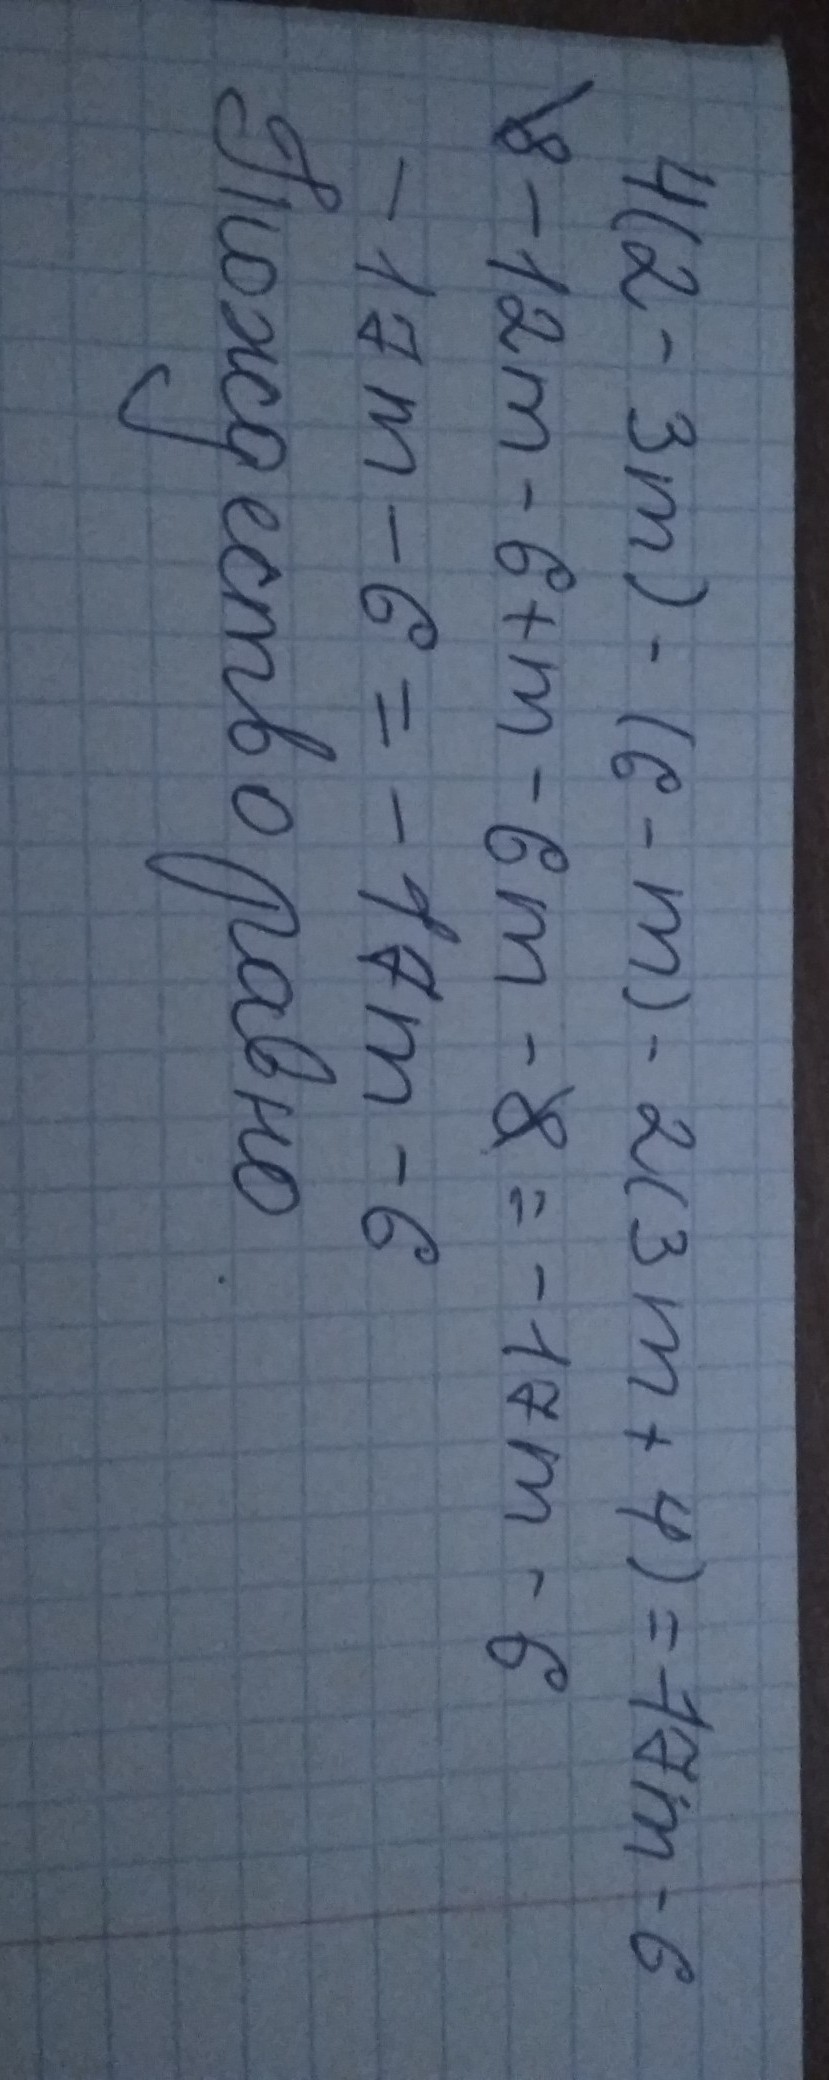 4(2-3m)-(6-m)-2(3m+4)=-17m-6
8-12m-6+m-6m-8=-17m-6
-17m-6=-17m-6
Тождество равно